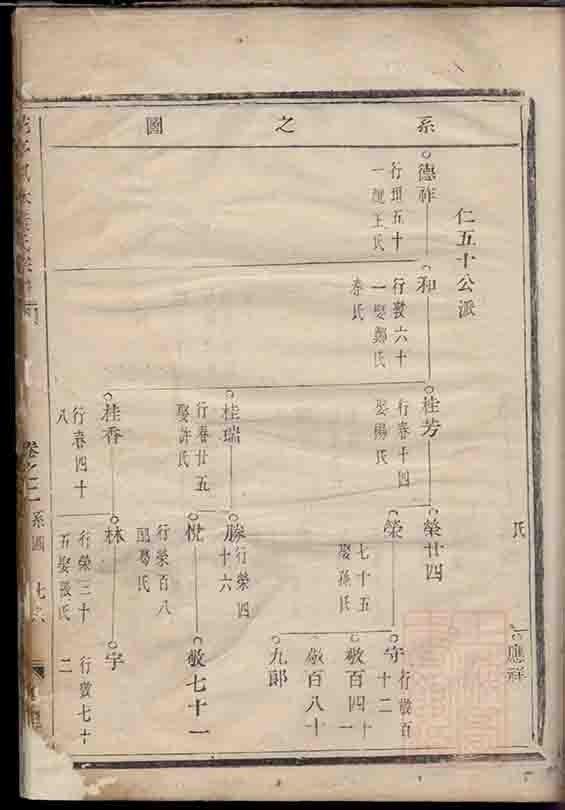 系之圖
氏
應祥
仁五十公派
德祚
行項五十
一娶王氏
和
行敦六十
一娶鄭氏
秦氏
桂芳
行春十四
娶楊氏
桂瑞
行春廿五
娶許氏
桂香
行春四十
八
榮廿四
榮
七十五
娶孫氏
勝
行榮四
十六
悅
行榮百八
娶葛氏
林
行榮三十
五娶張氏
守
行敬百
十二
敬百四十
一
敬百八十
九郎
敬七十一
宇
行敬七十
二
卷之二
系圖
七六